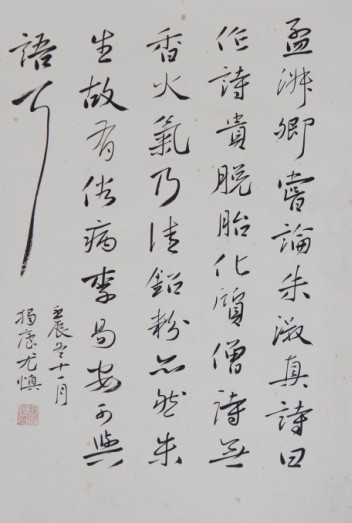 孟淑卿嘗論朱淑真詩曰
作詩貴脫胎化質僧詩無
香火氣乃佳鉛粉亦然朱
生故有俗病李易安可與
語耳
壬辰冬十一月
尤慎